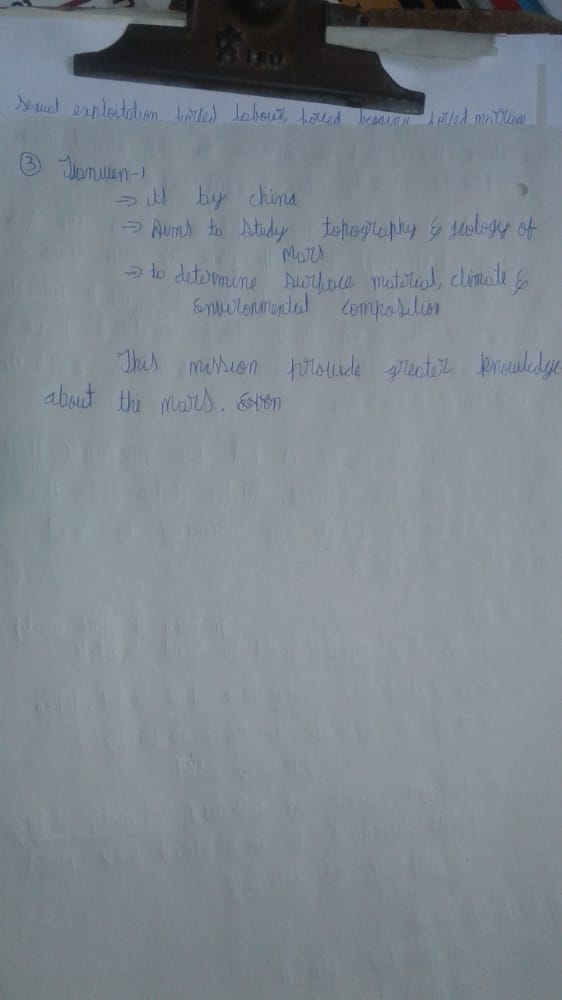 sexual exploitation forced labour, forced begging, forced marriage
③ Tianwen-1
⇒ its by china
⇒ Aims to study topography & geology of
Mars
⇒ to determine surface material, climate &
Environmental composition
This mission provide greater knowledge
about the mars.